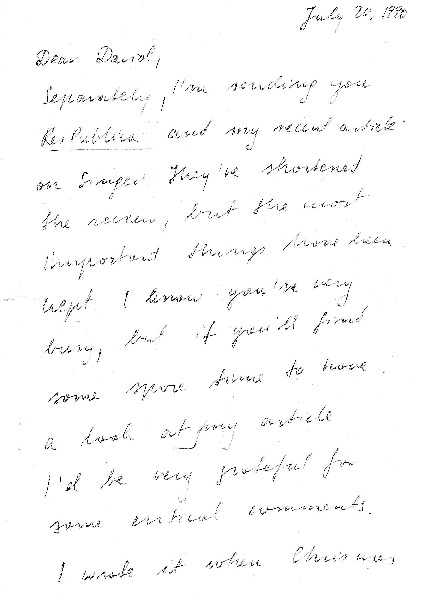 July 20, 1990
Dear David,
Separately, I'm sending you
Res Publica and my recent article
on Singer. They've shortened
the review, but the most
important things have been
kept. I know you're very
busy, but if you'll find
some spare time to have
a look at my article
I'd be very grateful for
some critical comments.
I wrote it when